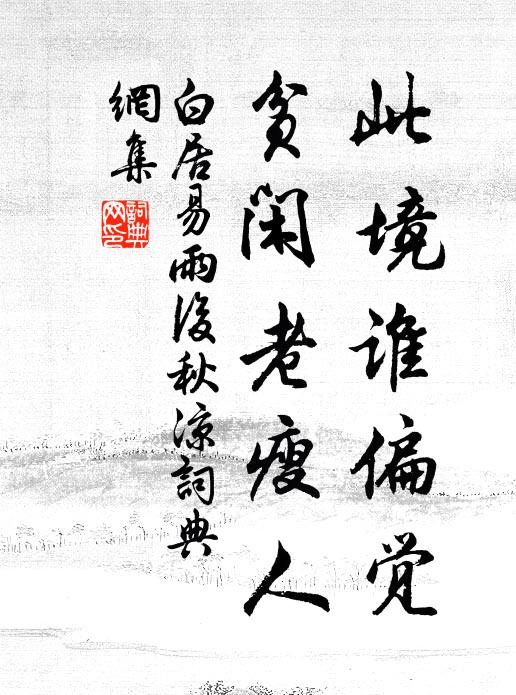 此境谁偏觉
贫闲老瘦人
白居易雨後秋凉詞典
網集
詞典網印